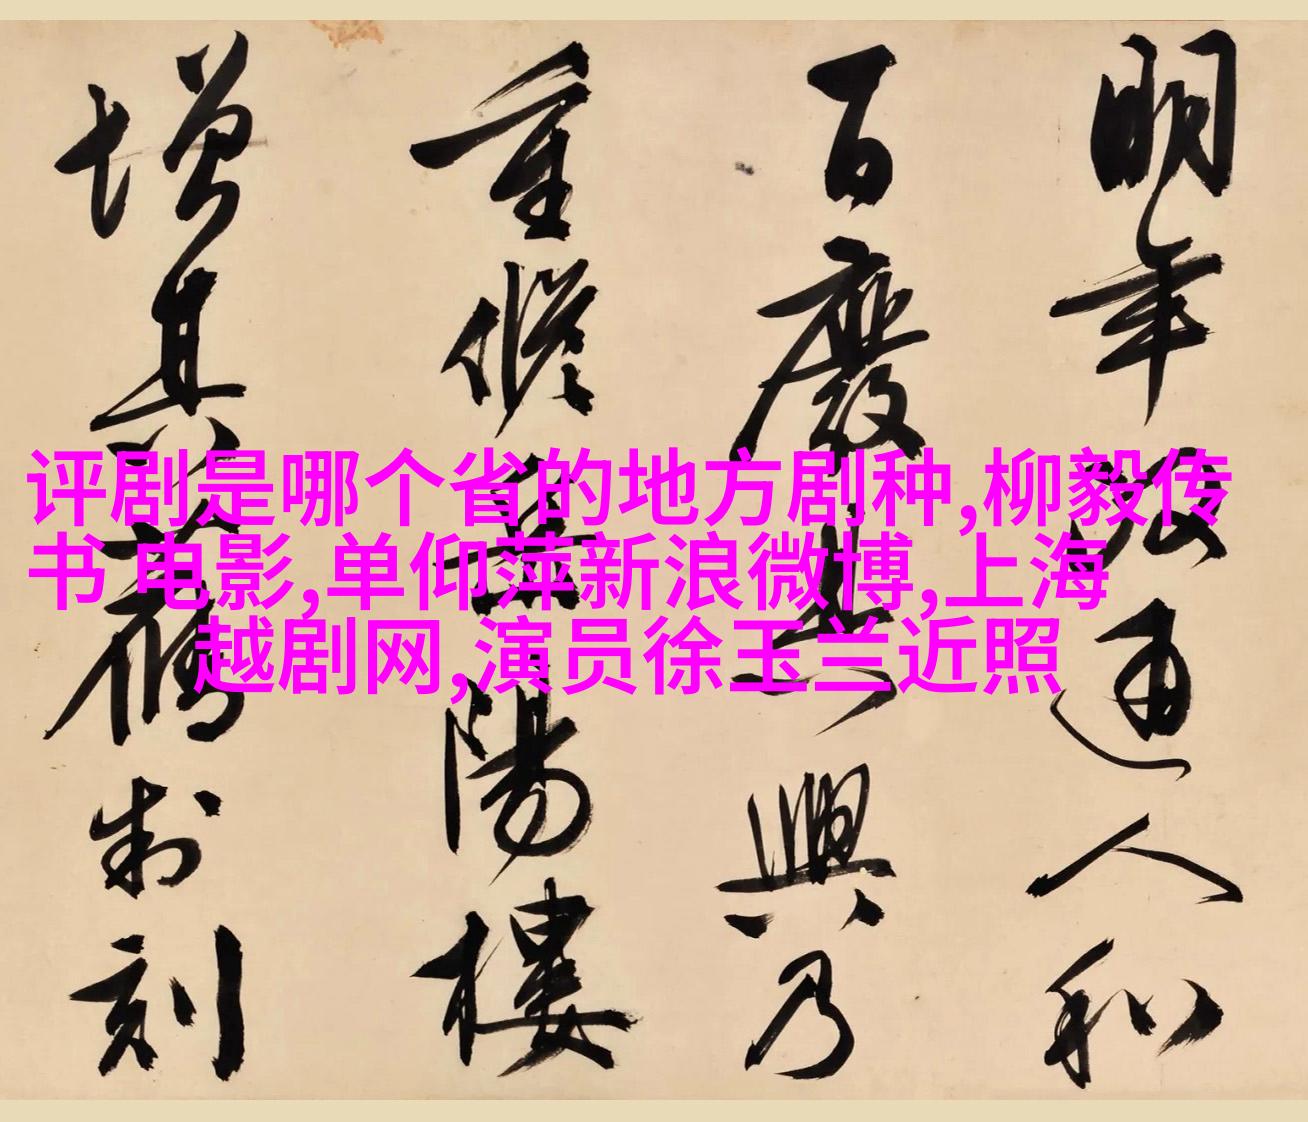 明年政通人和
百廢具興乃
重脩岳陽樓
增其舊制刻
评剧是哪个省的地方剧种,柳毅传
书 电影,单仰萍新浪微博,上海
越剧网,演员徐玉兰近照